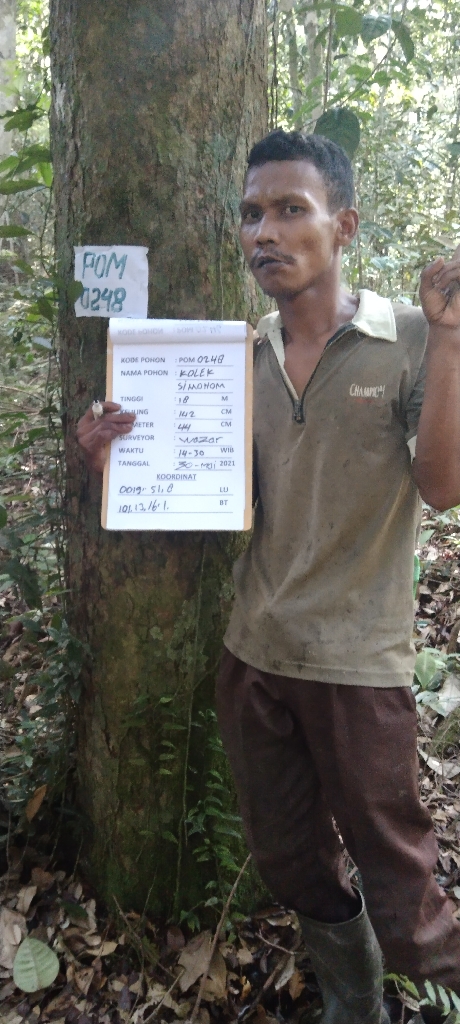 POM
0248
KODE POHON : POM 0248
NAMA POHON : KOLEK
SIMONOM
TINGGI : 18 M
KELILING : 142 CM
DIAMETER : 44 CM
SURVEYOR : WAZAR
WAKTU : 14-30 WIB
TANGGAL : 30-MEI 2021
KOORDINAT
0019.51.8 LU
101.13.16.1. BT
CHAMPION